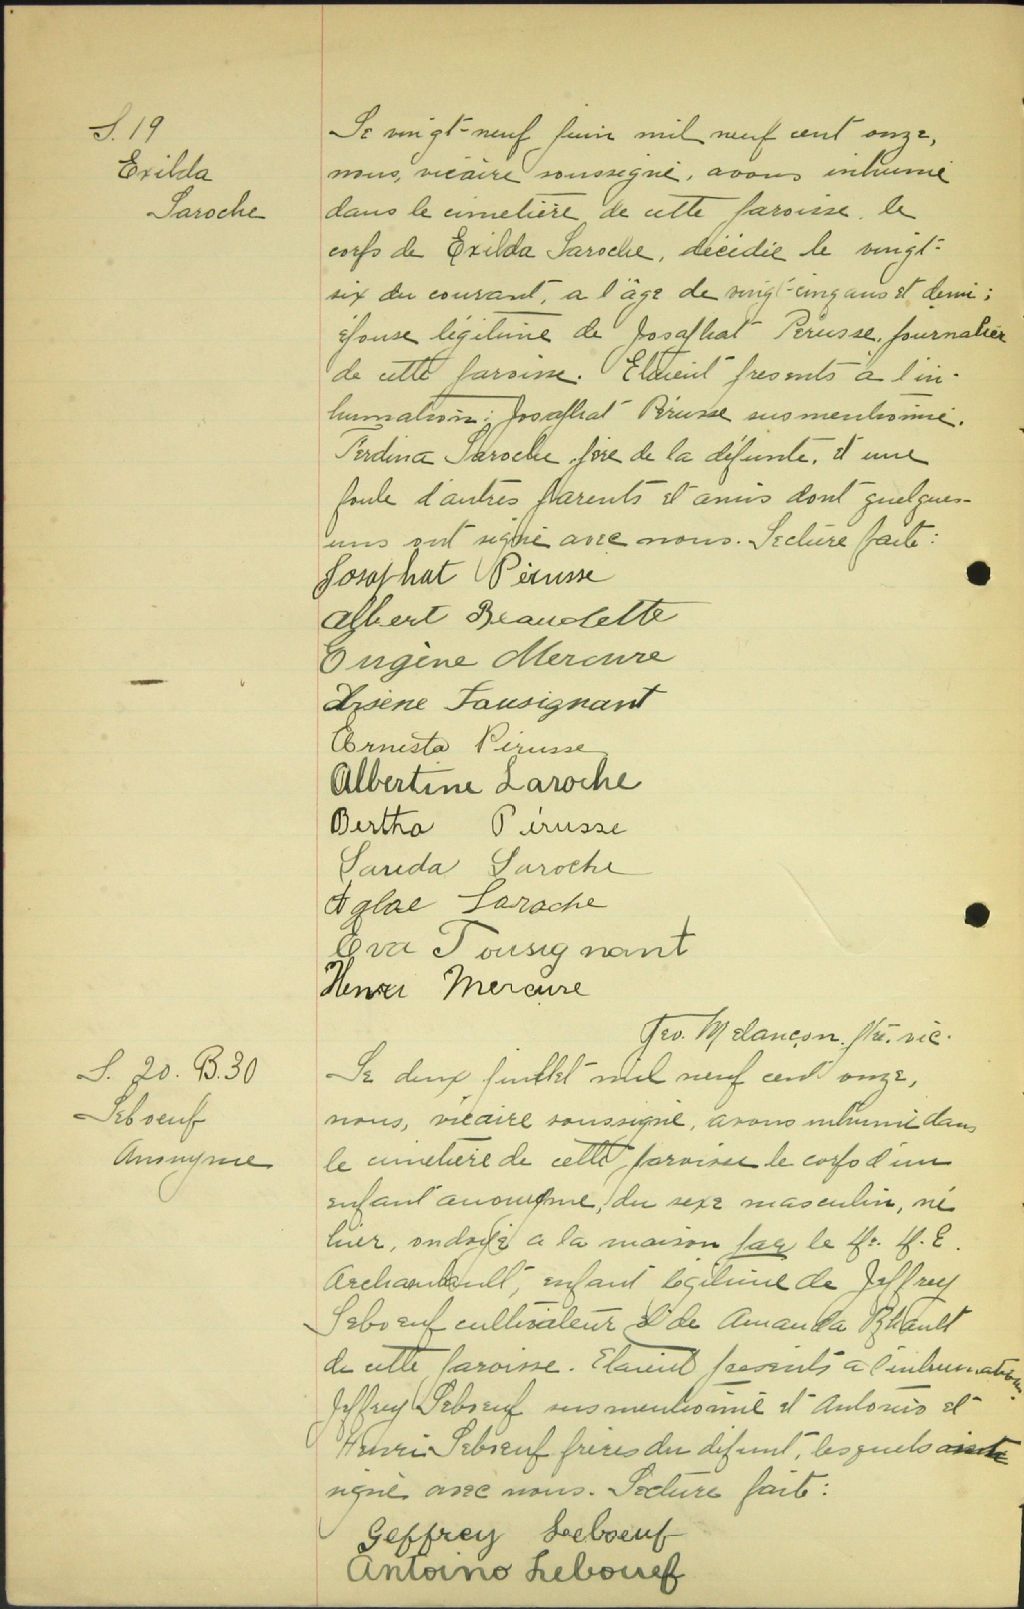 S. 19
Exilda
Laroche
Le vingt-neuf juin mil neuf cent onze,
nous, vicaire soussigné, avons inhumé
dans le cimetière de cette paroisse, le
corps de Exilda Laroche, décédée le vingt-
six du courant, a l'âge de vingt-cinq ans et demi;
épouse légitime de Josaphat Pérusse, journalier
de cette paroisse. Etaient présents à l'in-
humation: Josaphat Pérusse susmentionné,
Ferdina Laroche, père de la défunte, et une
foule d'autres parents et amis dont quelques-
uns ont signé avec nous. Lecture faite:
Josaphat Pérusse
Albert Beaudette
Eugène Mercure
Arsène Tousignant
Ernesta Pérusse
Albertine Laroche
Bertha Pérusse
Laroche
Aglae Laroche
Eva Tousignant
Henri Mercure
Geo. Melançon. ptre. vic.
S. 20. B. 30
Leboeuf
Anonyme
Le deux juillet mil neuf cent onze,
nous, vicaire soussigné, avons inhumé dans
le cimetière de cette paroisse le corps d'un
enfant anonyme, du sexe masculin, né
hier, ondoyé a la maison par le
Archambault, enfant légitime de Jeffrey
Leboeuf cultivateur et de Amanda Rhault
de cette paroisse. Etaient présents a l'inhumation:
Jeffrey Leboeuf susmentionné et Antonio et
Henri Leboeuf frères du défunt, lesquels
signé avec nous. Lecture faite:
Geffrey Leboeuf
Antoino Lebouef